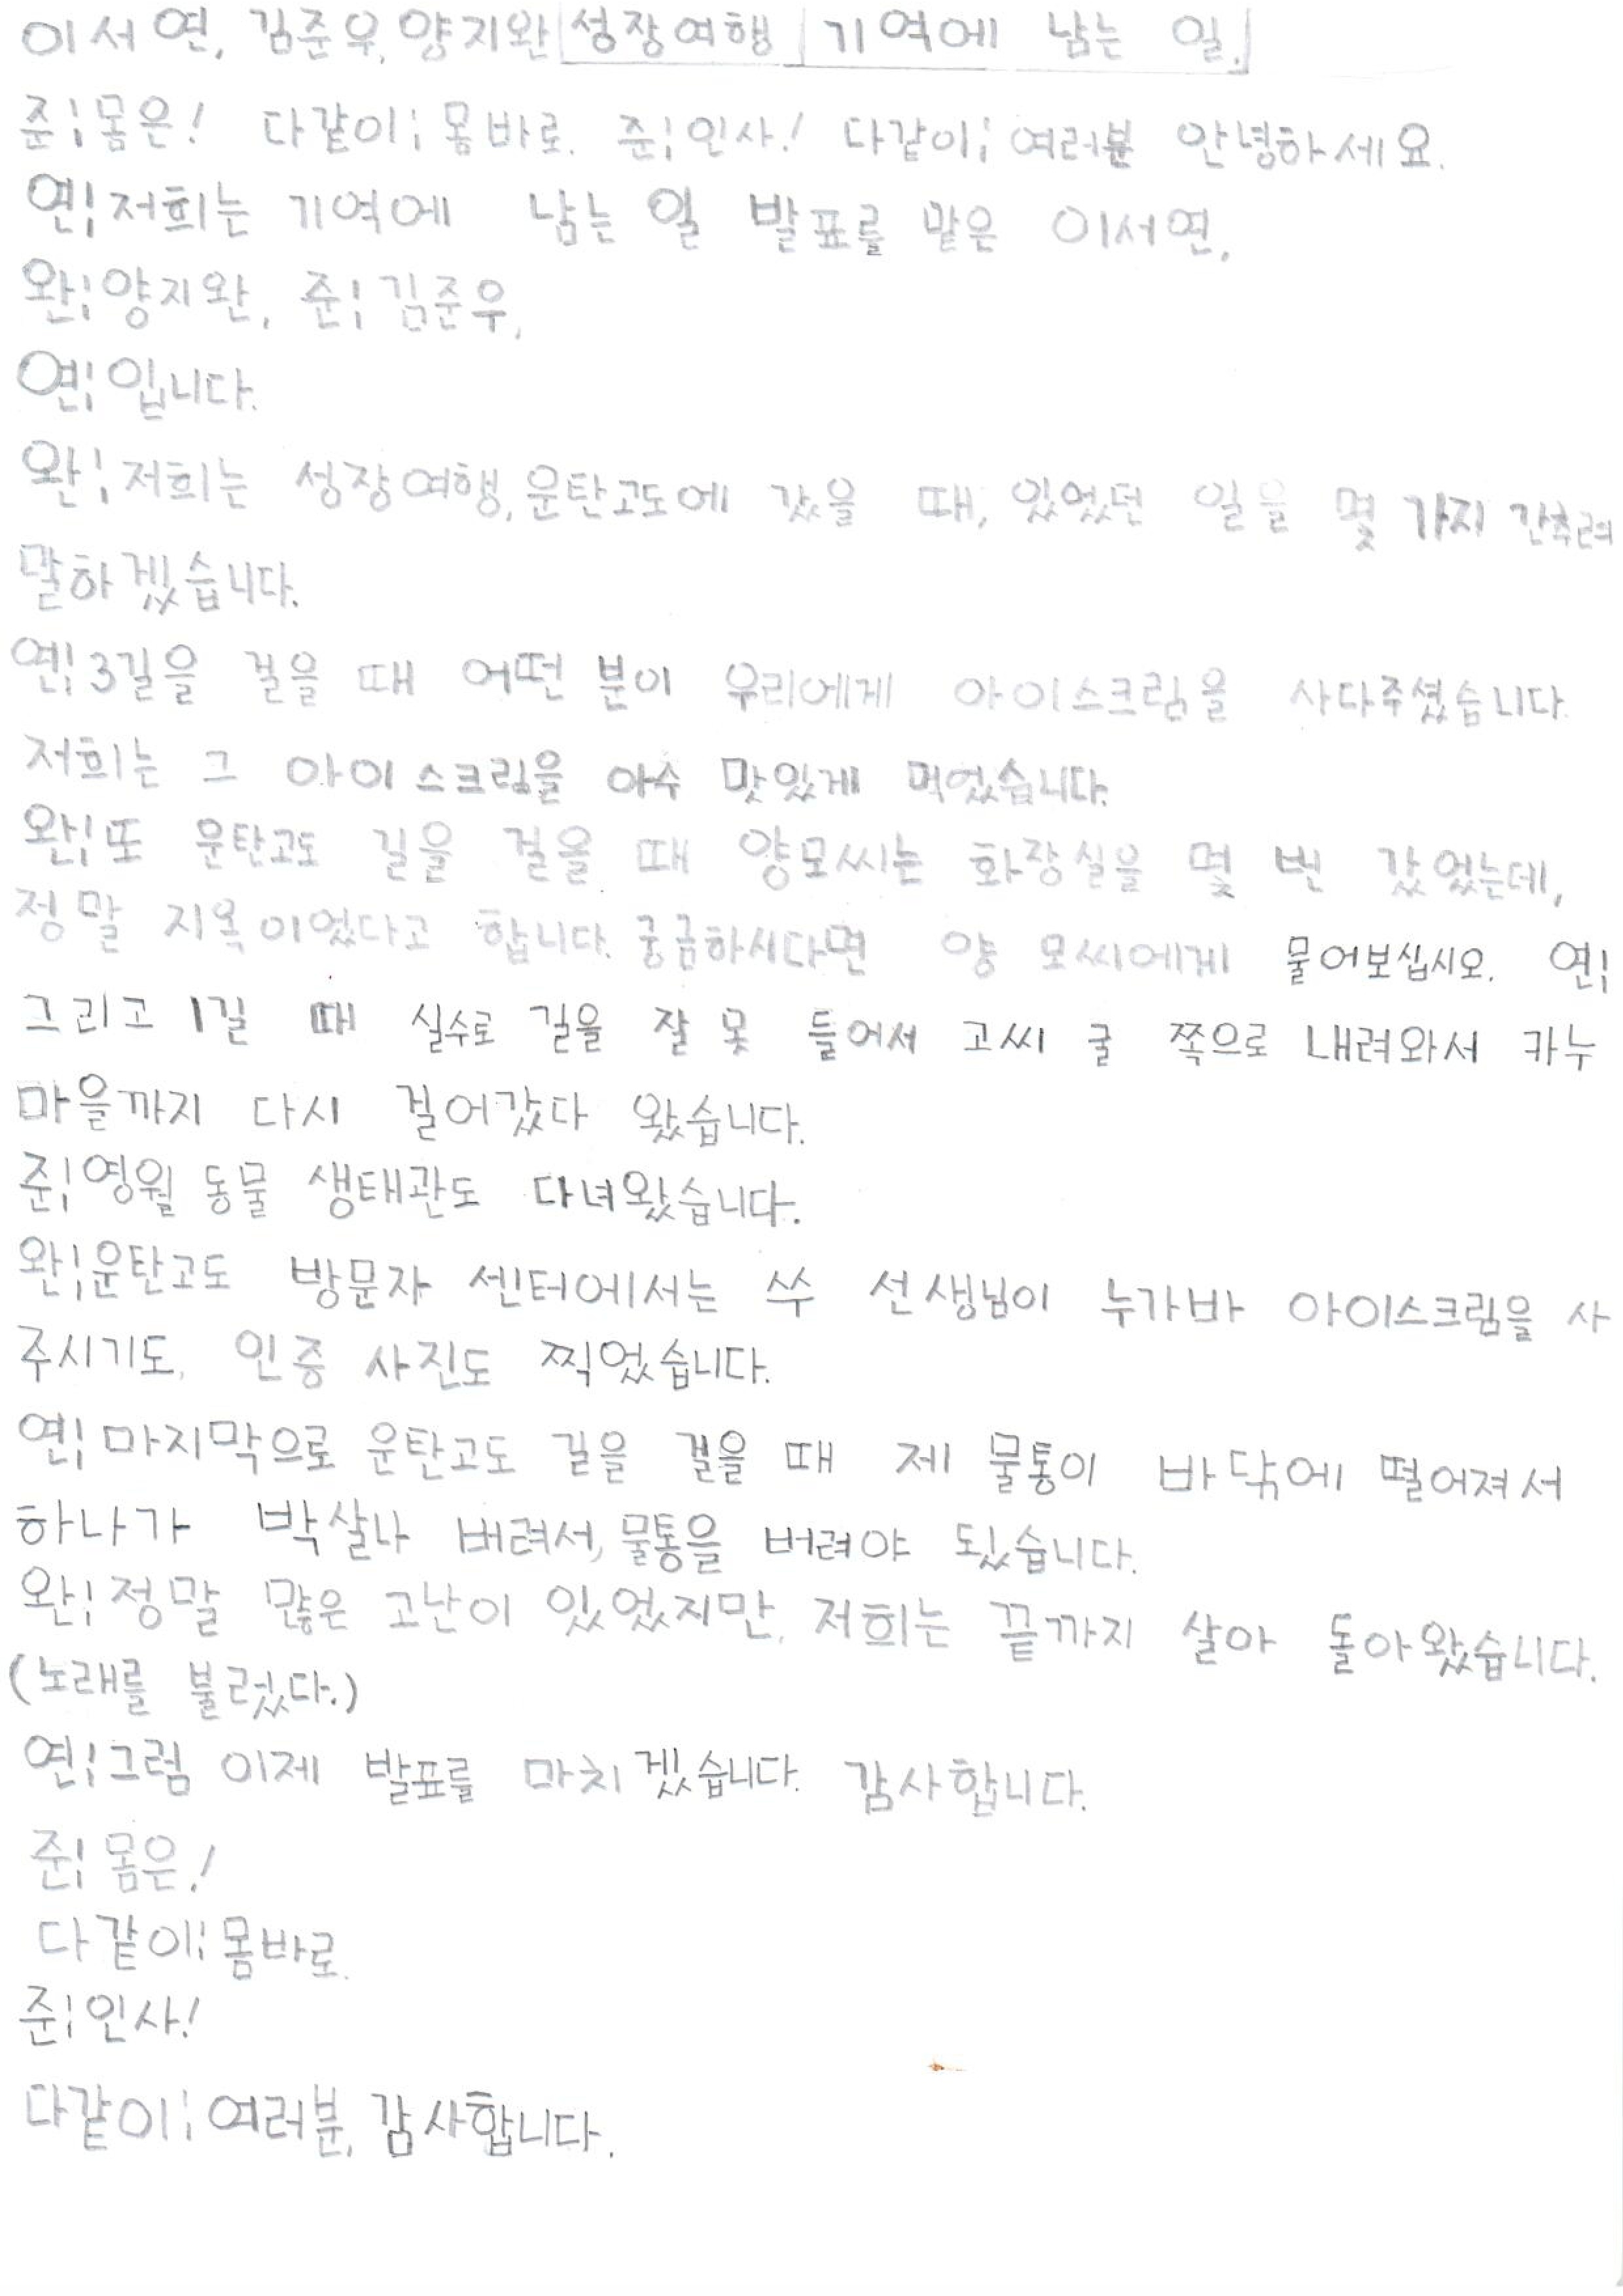 이서연, 김준우, 양지완 성장여행 기억에 남는 일.
준; 몸은! 다같이; 몸바로. 준; 인사! 다같이; 여러분 안녕하세요.
연; 저희는 기억에 남는 일 발표를 맡은 이서연,
완; 양지완, 준; 김준우,
연; 입니다.
완; 저희는 성장여행, 운탄고도에 갔을 때, 있었던 일을 몇 가지 간추려
말하겠습니다.
연; 3길을 걸을 때 어떤 분이 우리에게 아이스크림을 사다주셨습니다.
저희는 그 아이스크림을 아주 맛있게 먹었습니다.
완; 또 운탄고도 길을 걸을 때 양모씨는 화장실을 몇 번 갔었는데,
정말 지옥이었다고 합니다. 궁금하시다면 양 모씨에게 물어보십시오. 연;
그리고 1길 때 실수로 길을 잘 못 들어서 고씨 굴 쪽으로 내려와서 카누
마을까지 다시 걸어갔다 왔습니다.
준; 영월 동물 생태관도 다녀왔습니다.
완; 운탄고도 방문자 센터에서는 쑤 선생님이 누가바 아이스크림을 사
주시기도, 인증 사진도 찍었습니다.
연; 마지막으로 운탄고도 길을 걸을 때 제 물통이 바닦에 떨어져서
하나가 박살나 버려서, 물통을 버려야 됬습니다.
완; 정말 많은 고난이 있었지만, 저희는 끝까지 살아 돌아왔습니다.
(노래를 불렀다.)
연; 그럼 이제 발표를 마치겠습니다. 감사합니다.
준; 몸은!
다같이; 몸바로.
준; 인사!
다같이; 여러분, 감사합니다.